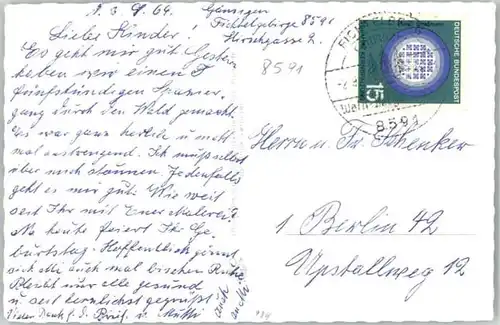 d. 3. 9. 64
Fichtelgebirge 8591
Hirschgasse 2.
8591
Liebe Kinder!
Es geht mir gut. Gestern
haben wir einen
fünfstündigen Spazier
gang durch den Wald gemacht.
Es war ganz herrlich u. nicht
mal anstrengend. Ich muß selbst
über mich staunen. Jedenfalls
geht es mir gut. Wie weit
seid Ihr mit Eurer Malerei?
Na heute feiert Ihr Ge-
burtstag. Hoffentlich gönnt
sich Alli auch mal bischen Ruhe.
Bleibt nur alle gesund
u. seid herzlichst gegrüßt
Vielen Dank f. d. Brief. v. Mutti
auch
DEUTSCHE BUNDESPOST
15
8591
Herrn u. Fr. Schenker
1 Berlin 42
Upstallweg 12